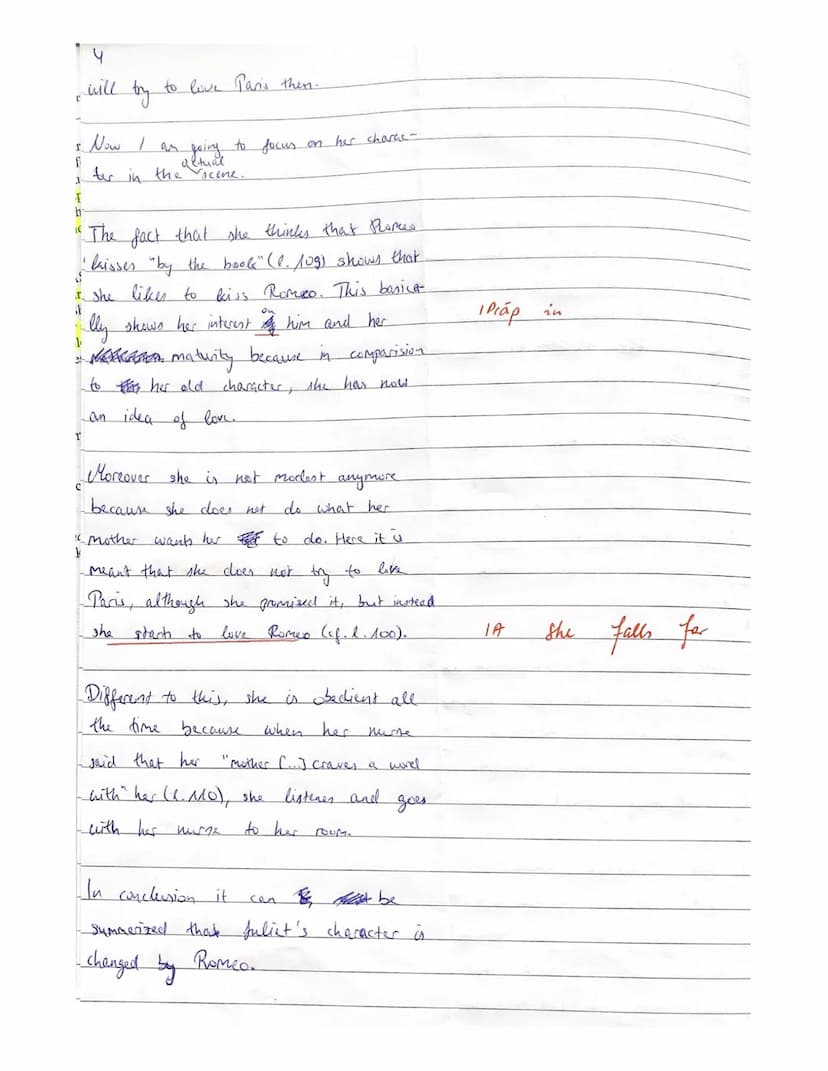 4
will try to love Paris then.
Now I am going to focus on her charac-
actual
ter in the scene.
The fact that she thinks that Romeo
kisses "by the book" (l. 109) shows that
she likes to kiss Romeo. This basica-
lly shows her interest on him and her
1 Präp in
maturity because in comparision
to her old character, she has now
an idea of love.
Moreover she is not modest anymore
because she does not do what her
mother wants her to do. Here it is
meant that she does not try to like
Paris, although she promised it, but instead
she starts to love Romeo (cf. l. 100).
1A she falls for
Different to this, she is obedient all
the time because when her nurse
said that her "mother [...] craves a word
with" her (l. 110), she listenes and goes
with her nurse to her room.
In conclusion it can be
summerized that Juliet's character is
changed by Romeo.